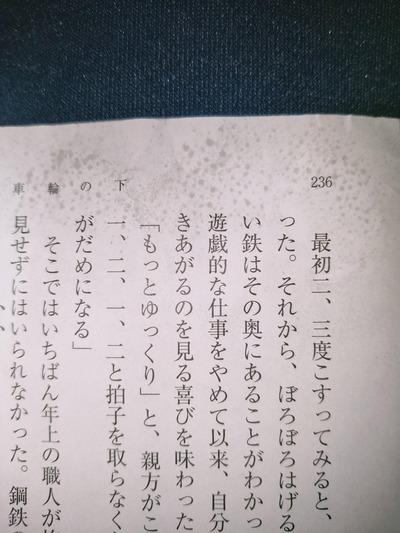 236
車輪の下
最初二、三度こすってみると、
った。それから、ぼろぼろはげる
い鉄はその奥にあることがわかっ
遊戯的な仕事をやめて以来、自分
きあがるのを見る喜びを味わった
「もっとゆっくり」と、親方がこ
一、二、一、二と拍子を取らなく
がだめになる」
そこではいちばん年上の職人が
見せずにはいられなかった。鋼鉄の